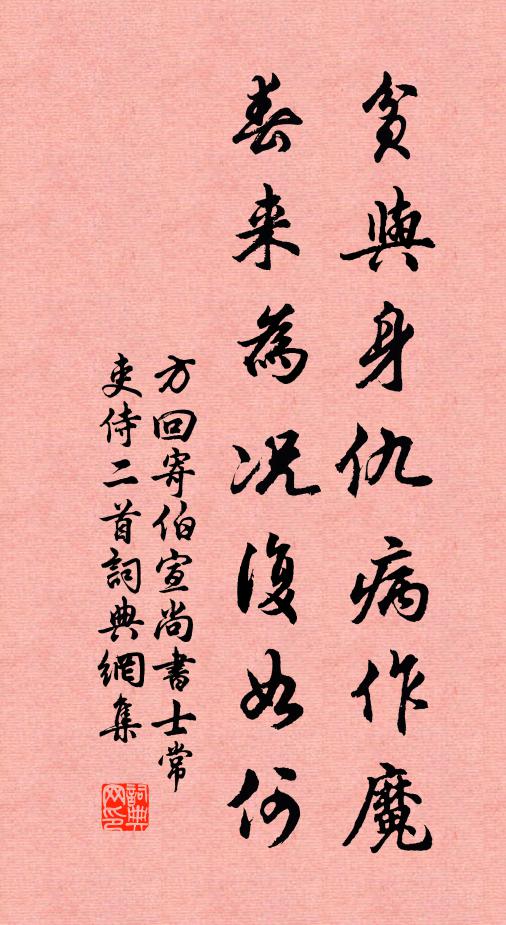 貧與身仇病作魔
春来為况復如何
方回寄伯宣尚書士常
吏侍二首詞典網集
詞典網印